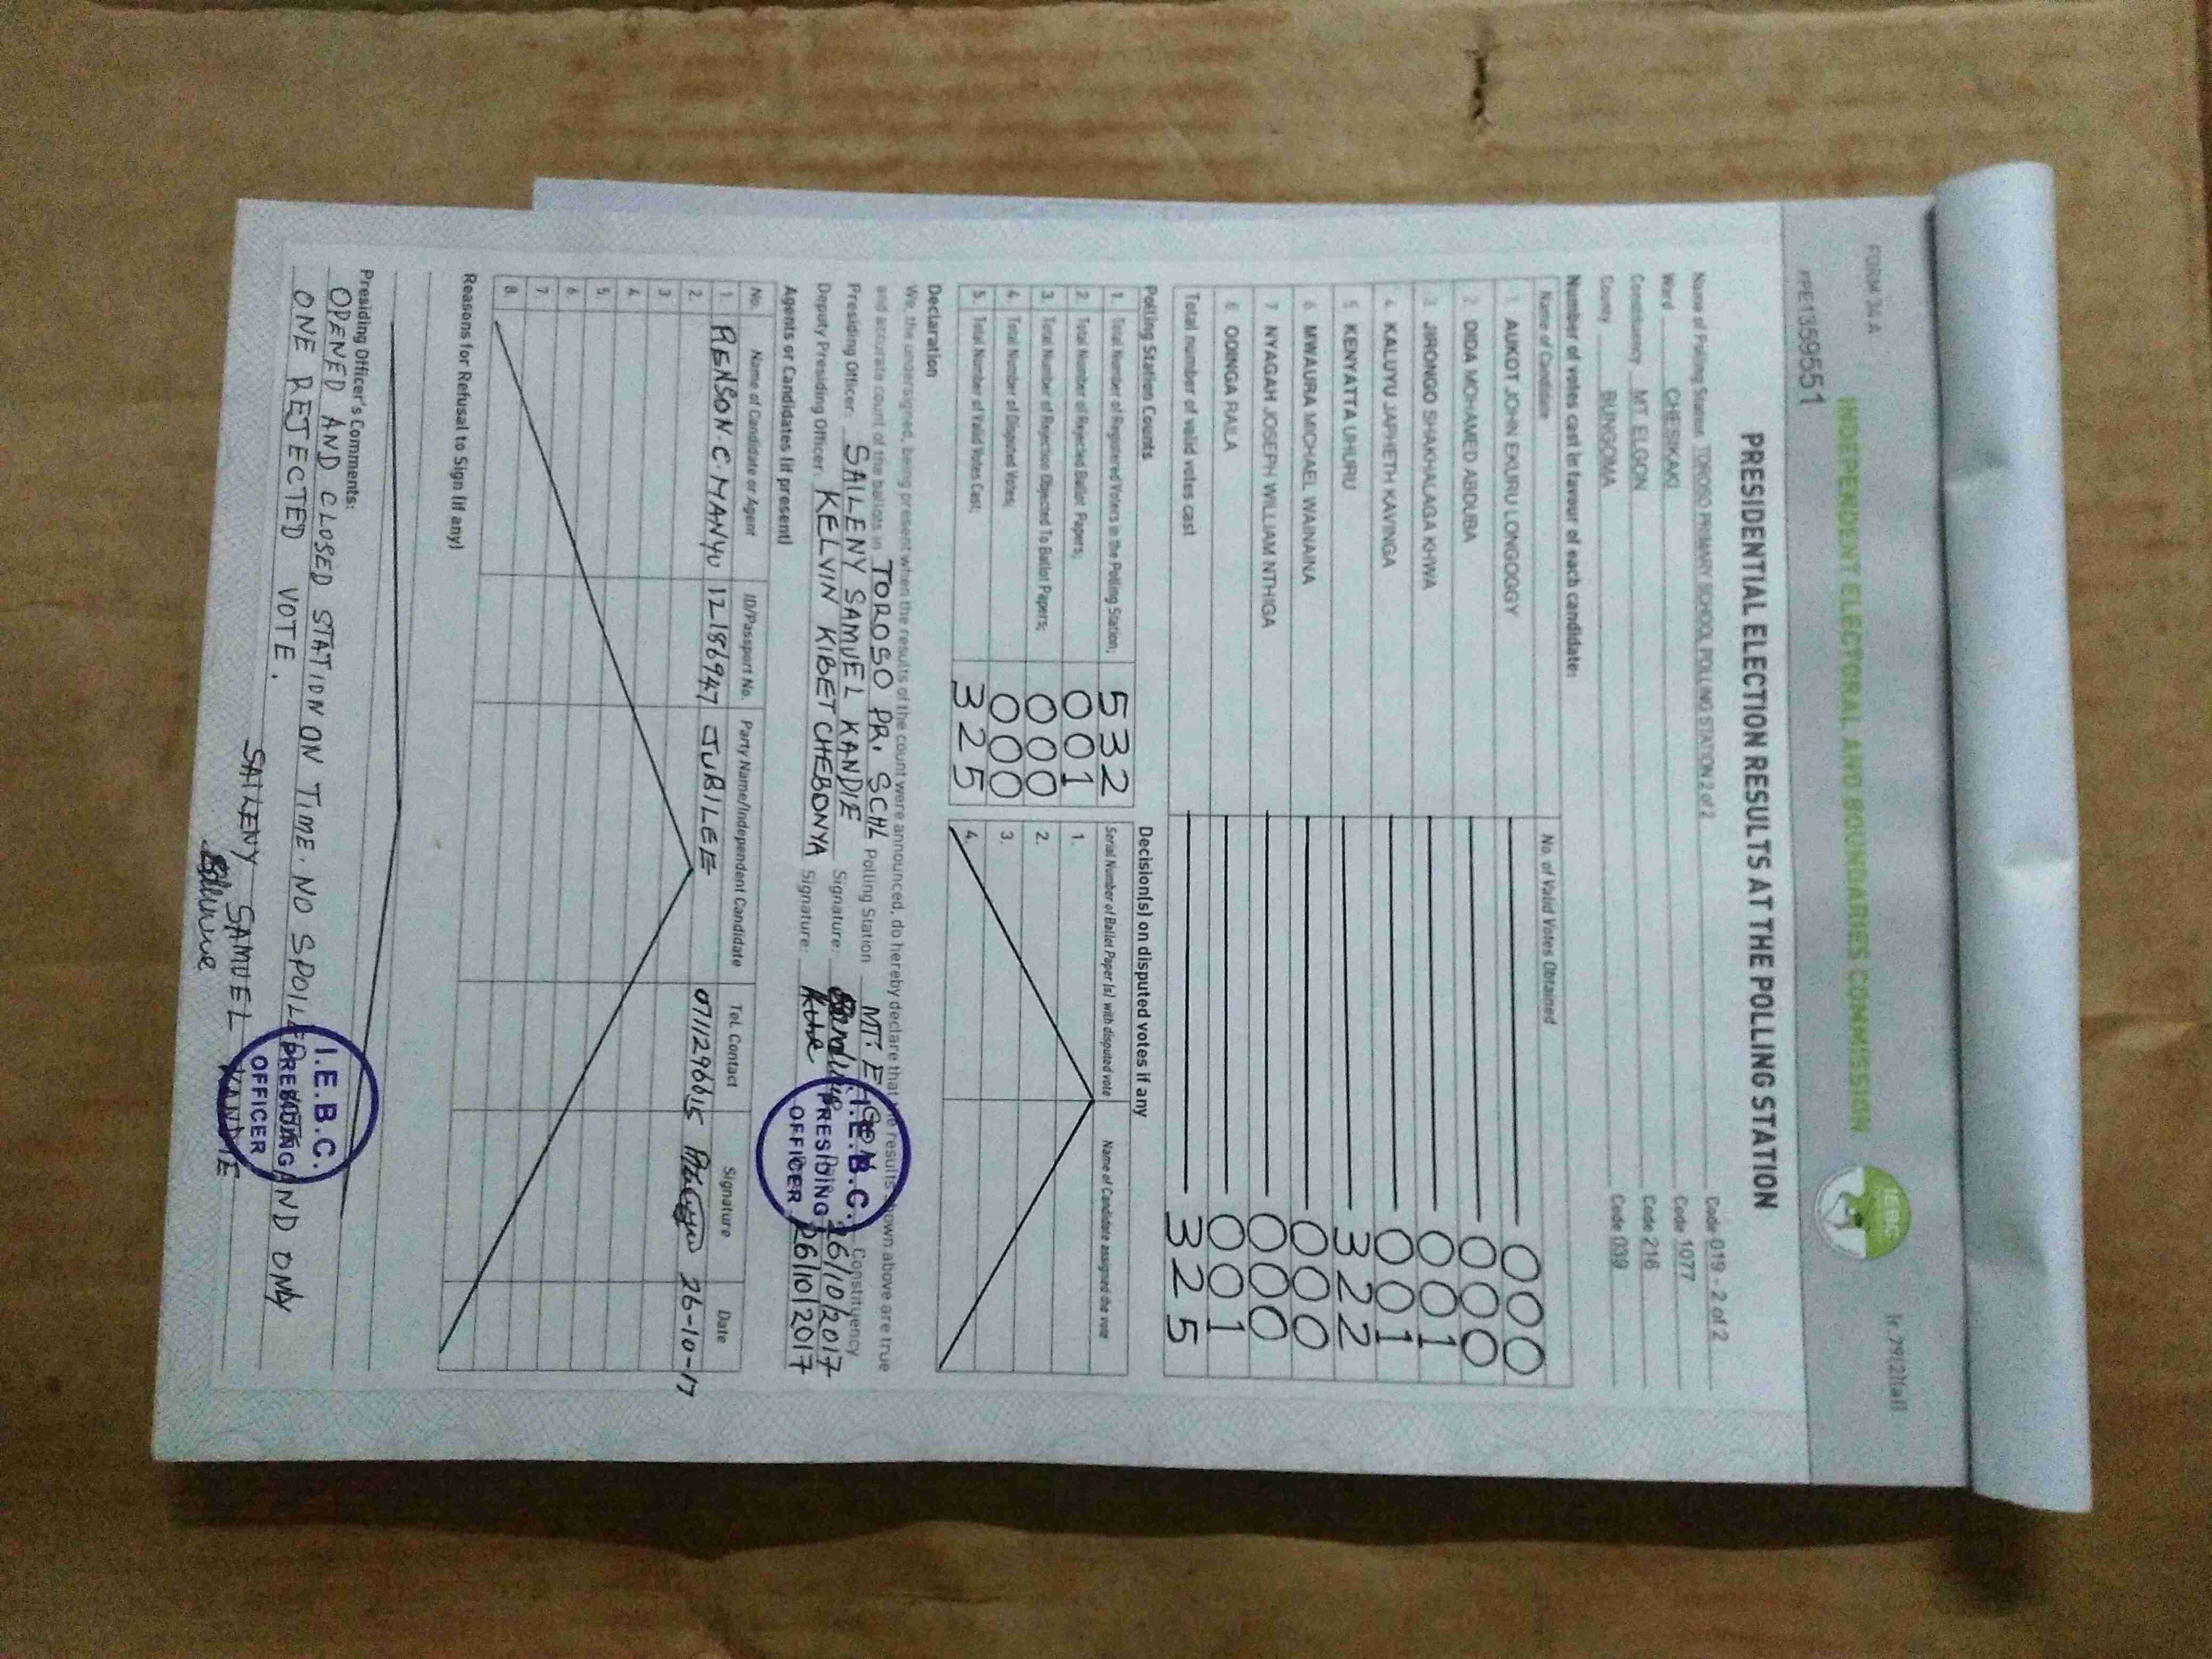 FORM 34 A
INDEPENDENT ELECTORAL AND BOUNDARIES COMMISSION
IEBC
PPE1359551
PRESIDENTIAL ELECTION RESULTS AT THE POLLING STATION
Name of Polling Station TOROSO PRIMARY SCHOOL POLLING STATION 2 of 2 Code 019 - 2 of 2
Ward CHESIKAKI Code 1077
Constituency MT ELGON Code 216
County BUNGOMA Code 039
Number of votes cast in favour of each candidate:
Name of Candidate No. of Valid Votes Obtained
1 AUKOT JOHN EKURU LONGOGGY 000
2 DIDA MOHAMED ABDUBA 000
3 JIRONGO SHAKHALAGA KHWA 001
4 KALUYU JAPHETH KAVINGA 001
5 KENYATTA UHURU 322
6 MWAURA MICHAEL WAINAINA 000
7 NYAGAH JOSEPH WILLIAM NTHIGA 000
8 ODINGA RAILA 001
Total number of valid votes cast 325
Polling Station Counts
1. Total Number of Registered Voters in the Polling Station; 532
2. Total Number of Rejected Ballot Papers; 001
3. Total Number of Rejection Objected To Ballot Papers; 000
4. Total Number of Disputed Votes; 000
5. Total Number of Valid Votes Cast; 325
Decision(s) on disputed votes if any
Serial Number of Ballot Paper (s) with disputed vote Name of Candidate assigned the vote
1.
2.
3.
4.
Declaration
We, the undersigned, being present when the results of the count were announced, do hereby declare that the results shown above are true
and accurate count of the ballots in TOROSO PR. SCHL Polling Station MT. ELGON Constituency
Presiding Officer: SAILENY SAMUEL KANDIE Signature: 26/10/2017
Deputy Presiding Officer: KELVIN KIBET CHEBONYA Signature: 26/10/2017
I.E.B.C.
PRESIDING
OFFICER
Agents or Candidates (if present)
No. Name of Candidate or Agent ID/Passport No. Party Name/Independent Candidate Tel. Contact Signature Date
1. RENSON.C.MANYU 12186947 JUBILEE 0711296615 26-10-17
2.
3
4
5.
6.
7.
8.
Reasons for Refusal to Sign (if any)
Presiding Officer's Comments:
OPENED AND CLOSED STATION ON TIME. NO SPOILED AND ONLY
ONE REJECTED VOTE.
SAILENY SAMUEL KANDIE
I.E.B.C.
PRESIDING
OFFICER